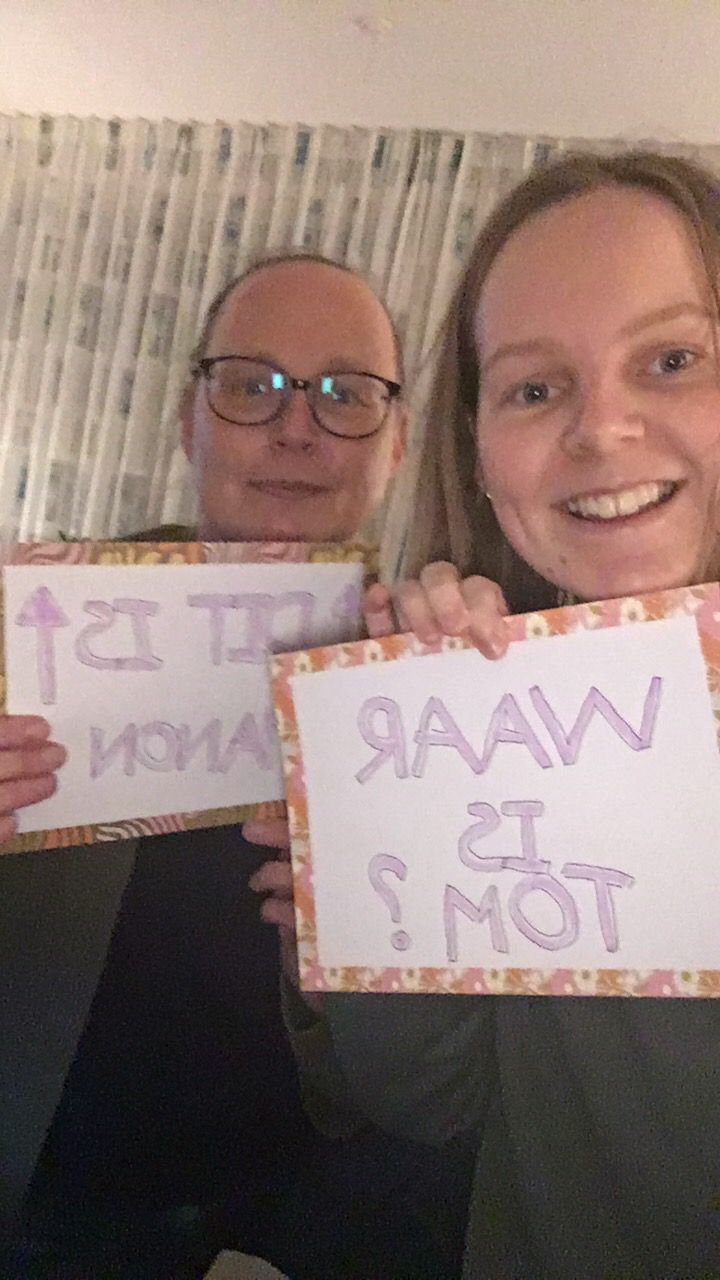 ↑ DIT IS ↑
ANON
WAAR
IS
TOM?